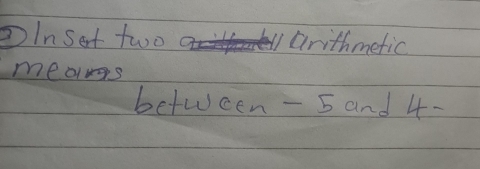 2) Inset two arithmetic
means
between - 5 and 4-